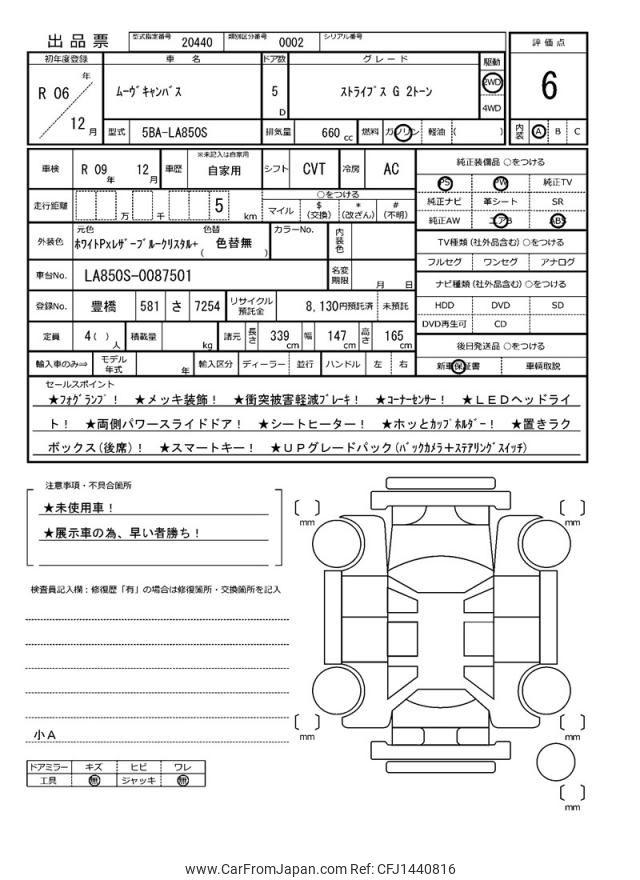 出品票
型式指定番号 20440 類別区分番号 0002 シリアル番号
評価点
6
内装 A B C
初年度登録 車名 ドア数 グレード 駆動
R 06 年 12 月
ﾑｰｳﾞｷｬﾝﾊﾞｽ
5 D
ｽﾄﾗｲﾌﾟｽ G 2トーン
2WD
4WD
型式 5BA-LA850S 排気量 660 cc 燃料 ガソリン 軽油 ( )
車検 R 09 年 12 月 車歴 ※未記入は自家用 自家用 シフト CVT 冷房 AC
走行距離 万 千 5 km
○をつける
マイル $ (交換) * (改ざん) # (不明)
外装色 元色 ﾎﾜｲﾄPxﾚｻﾞｰﾌﾞﾙｰｸﾘｽﾀﾙ+ 色替 ( 色替無 ) カラーNo. 内装色
車台No. LA850S-0087501 名変期限 月 日
登録No. 豊橋 581 さ 7254 リサイクル預託金 8,130円預託済 未預託
定員 4( ) 人 積載量 kg 諸元 長さ 339 cm 幅 147 cm 高さ 165 cm
輸入車のみ⇒ モデル年式 年 輸入区分 ディーラー 並行 ハンドル 左 右
純正装備品 ○をつける
PS PW 純正TV
純正ナビ 革シート SR
純正AW エアB ABS
TV種類(社外品含む) ○をつける
フルセグ ワンセグ アナログ
ナビ種類(社外品含む) ○をつける
HDD DVD SD
DVD再生可 CD
後日発送品 ○をつける
新車保証書 車輌取説
セールスポイント
★ﾌｫｸﾞﾗﾝﾌﾟ！ ★メッキ装飾！ ★衝突被害軽減ﾌﾞﾚｰｷ！ ★ｺｰﾅｰｾﾝｻｰ！ ★ＬＥＤヘッドライ
ト！ ★両側パワースライドドア！ ★シートヒーター！ ★ホッとｶｯﾌﾟﾎﾙﾀﾞｰ！ ★置きラク
ボックス(後席)！ ★スマートキー！ ★ＵＰグレードパック(ﾊﾞｯｸｶﾒﾗ＋ｽﾃｱﾘﾝｸﾞｽｲｯﾁ)
注意事項・不具合箇所
★未使用車！
★展示車の為、早い者勝ち！
検査員記入欄：修復歴「有」の場合は修復箇所・交換箇所を記入
小Ａ
ドアミラー キズ ヒビ ワレ
工具 無 ジャッキ 無
[ ] mm
[ ] mm
[ ] mm
[ ] mm
[ ] mm
www.CarFromJapan.com Ref: CFJ1440816